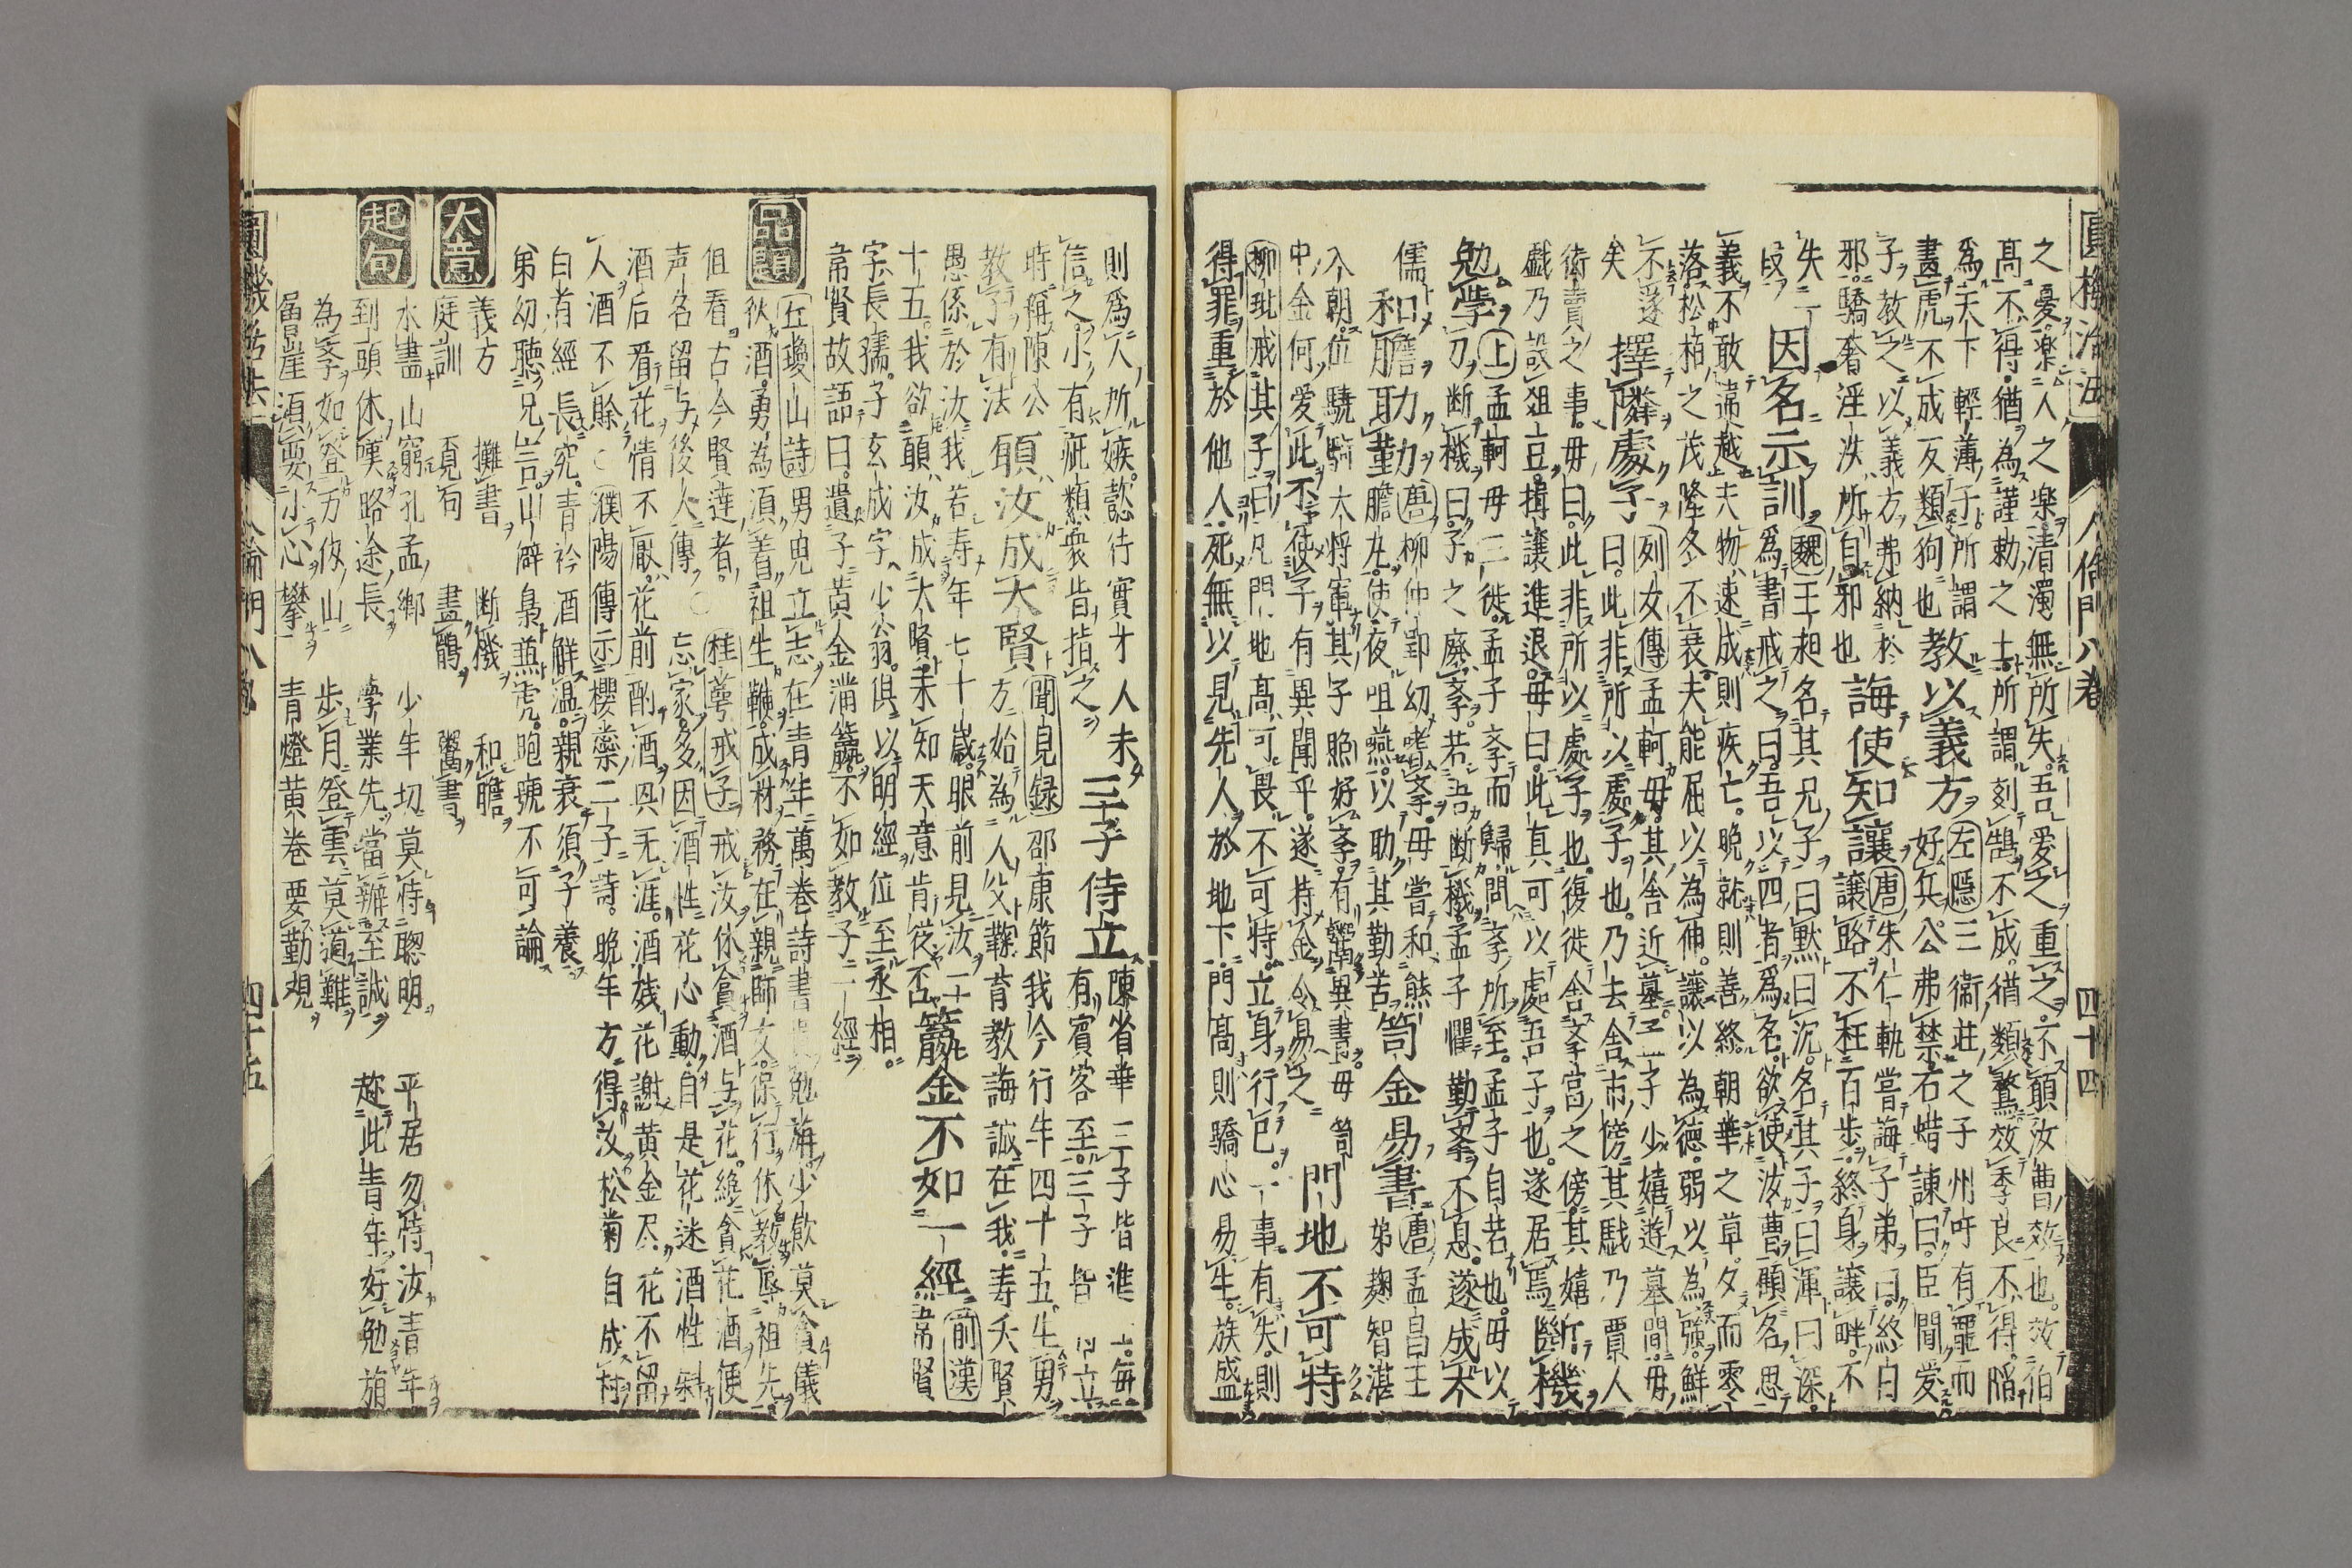 圓機活法 人倫門八卷 四十四
之憂。樂人之樂。清濁無所失。吾愛之重之。不願汝曹效也。效伯
高不得。猶為謹勅之士。所謂刻鵠不成。猶類鶩。效季良不得。陷
為天下輕薄子。所謂
畫虎不成反類狗也 教以義方 左隱三衛莊之子州吁有寵而好兵。公弗禁。石碏諫曰。臣聞愛
子教之以義方弗納於
邪。驕奢淫泆。所自邪也 誨使知讓 唐朱仁軌嘗誨子弟曰。終身讓路。不枉百步。終身讓畔。不
失一段 因名示訓 魏王昶名其兄子曰默曰沉。名其子曰渾曰深。
為書戒之曰。吾以四者為名。欲使汝曹顧名思
義不敢違越。夫物速成則疾亡。晚就則善終。朝華之草。夕而零
落。松栢之茂。隆冬不衰。夫能屈以為伸。讓以為德。弱以為強。鮮
不遂矣 擇隣處子 列女傳孟軻母。其舍近墓。孟子少嬉遊墓間。母
曰。此非所以處子也。乃去舍市傍。其戲乃賈人
衒賣之事。母曰。此非所以處子也。復徙舍學宮之傍。其嬉
戲乃設俎豆。揖讓進退。母曰。此真可以處吾子也。遂居焉 斷機
勉學 上孟軻母三徙。孟子學而歸。問學所至。孟子自若也。母以
刀斷機曰。子之廢學。若吾斷機。孟子懼勤學不息。遂成大
儒 和膽助力 唐柳仲郢幼嗜學。母嘗和熊
膽丸。使夜咀嚥。以助其勤苦 笥金易書 唐孟昌王
弟麹智湛
入朝。位驍騎大將軍其子昭好學。有鬻異書。母笥
中金何愛。此不使子有異聞乎。遂持金易之 門地不可恃
柳玭戒其子曰。凡門地高。可畏。不可恃。立身行己。一事有失。則
得罪重於他人。死無以見先人於地下。門高則驕心易生。族盛
則為人所嫉。懿行實才人未
信之。小有疵纇衆皆指之 三子侍立 陳省華三子皆進士。每
有賓客至。三子皆侍立
時稱陳公
教子有法 願汝成大賢 聞見録邵康節我今行年四十五。生男
方始為人父。鞠育教誨誠在我。壽夭賢
愚係於汝。我若壽年七十歳。眼前見汝二十
十五。我欲願汝成大賢。未知天意肯從否 籯金不如一經 前漢
韋賢
字長孺。子玄成字少翁。俱以明經位至丞相。
常賢故語曰。遺子黃金滿籯。不如教子一經
品題
丘瓊山詩 男兒立志在青年萬卷詩書勉誨。少飲莫貪儀
狄酒。勇為須着祖生鞭。成材務在親師友。保行休教辱祖先。
但看古今賢達者。声名留与後人傳 ○ 桂萼戒子 戒汝休貪酒与花。絶貪花酒便
忘家。多因酒性花心動。自是花迷酒性斜。
酒后看花情不厭。花前酌酒興无涯。酒娥花謝黃金尽。花不留
人酒不賒 ○ 濮陽傳示櫻藥二子詩。晚年方得汝。松菊自成村。
白首經長究。青衿酒鮮温。親衰須子養。
弟幼聽兄言。山僻梟與虎。跑號不可論
大意
義方 攤書 斷機 和膽
庭訓 覓句 畫鶴 鬻書
起句
水盡山窮孔孟鄉 少年切莫恃聰明 平居勿恃汝青年
到頭休嘆略途長 學業先當辨至誠 趂此青年好勉旃
為學如登万仭山 步月登雲莫道難
層崖須要小心攀 青燈黄卷要勤覌
圓機活法 人倫門八卷 四十五